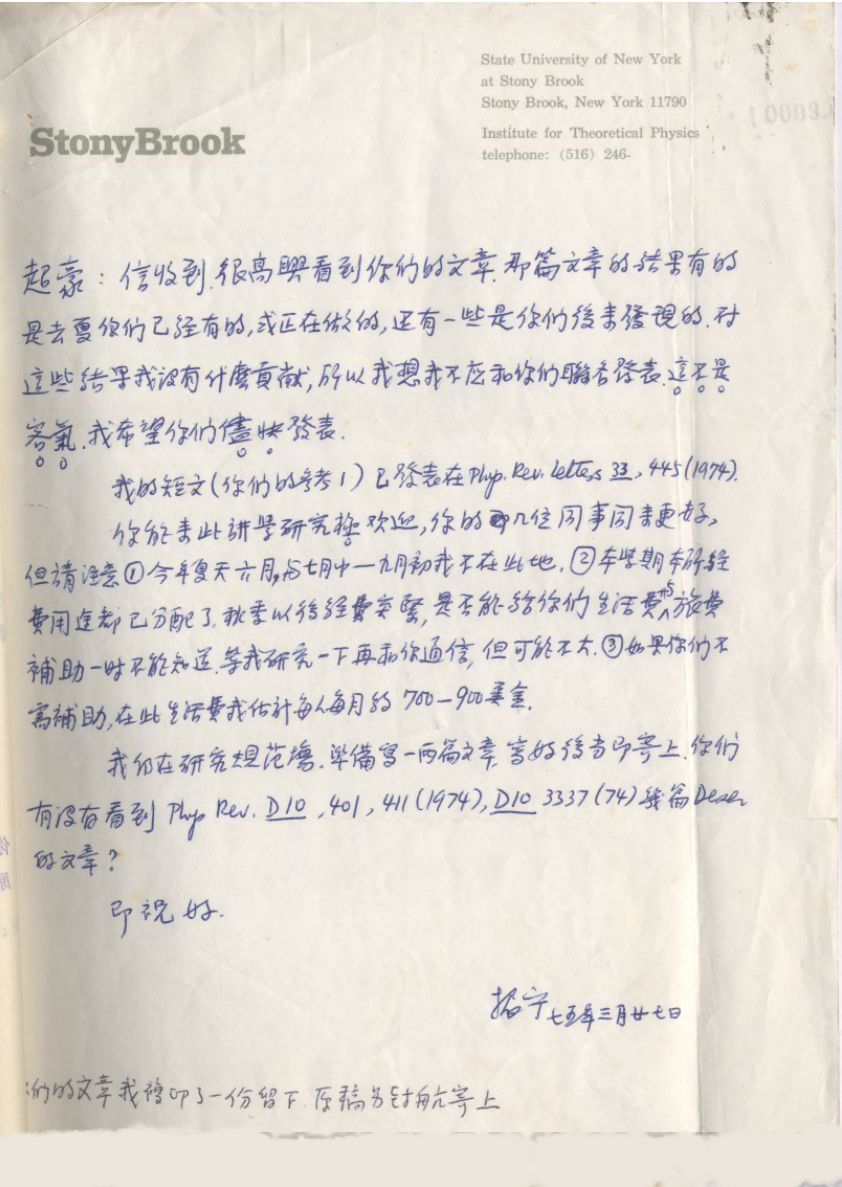 State University of New York
at Stony Brook
Stony Brook, New York 11790
Institute for Theoretical Physics
telephone: (516) 246-
StonyBrook
起豪：信收到.很高興看到你们的文章.那篇文章的结果有的
是去夏你们已经有的,或正在做的,还有一些是你们後来發現的.对
這些结果我没有什麼貢献,所以我想我不应和你们聯名發表.這不是
客氣.我希望你们儘快發表.
我的短文(你们的参考1)已發表在Phys. Rev. Letters 33, 445(1974).
你能来此讲學研究極欢迎,你的几位同事同来更好,
但請注意①今年夏天六月,与七月中一九月初我不在此地.②本學期本所经
費用途都已分配了.秋季以後经費突緊,是否能给你们生活費与旅費
補助一时不能知道.等我研究一下再和你通信,但可能不大.③如果你们不
需補助,在此生活費我估計每人每月约700-900美金.
我仍在研究規范場.準備寫一两篇文章.寫好後当即寄上.你们
有没有看到 Phys Rev. D10, 401, 411(1974), D10 3337(74)幾篇Deser
的文章?
即祝 好.
振宁 七五年三月廿七日
们的文章我複印了一份留下.原稿另封航寄上